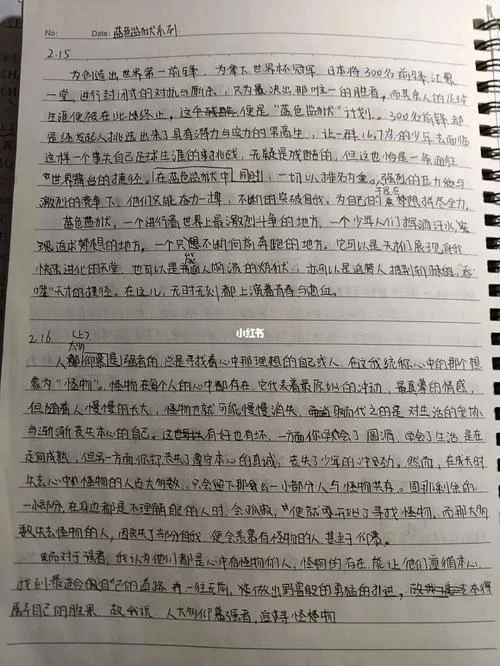 No:
Date: 蓝色监狱系列
2.15
为创造出世界第一前锋,为拿下世界杯冠军,日本将300名前锋汇聚
一堂,进行封闭式的对抗与厮杀,只为最决出那唯一的胜者,而其余人的足球
生涯便被在此终止,这个便是“蓝色监狱”计划。300名前锋都
是经发起人挑选出来了具有潜力与实力的男高生,让一群16,7岁的少年去面临
这样一个事关自己足球生涯的挑战,无疑是残酷的,但这也恰是一条通往
世界舞台的捷径。在蓝色监狱中同时,一切以排名为重。强烈的压力与
激烈的竞争下,他们只能奋力一搏,不断的突破自我,为自己的梦想拼尽全力。
蓝色监狱,一个进行着世界上最激烈斗争的地方,一个少年人们挥洒汗水,实
现追求梦想的地方,一个只想不断向前奔跑的地方。它可以是天才们展现自我
快速进化的天堂,也可以是人的炼狱,亦可以是追赶人
天才的捷径。在这儿,无时无刻都上演着青春与热血。
小红书
2.16 (上)
人大多仰慕强者的,总是寻找着心中那理想的自己或人,在这我统称心中的那个想
象为“怪物”。怪物在每个人的心中都存在,它代表着最原始的冲动,最真挚的情感,
但随着人慢慢的长大,怪物也就可能慢慢消失,取而代之的是对生活的妥协
与渐渐丧失本心的自己。这有好也有坏,一方面你学会了圆滑,学会了生活,是在
走向成熟,但另一方面你却丧失了遵守本心的真诚,丧失了少年的冲劲。然而,在成长时
失去心中怪物的人占大多数,只会留下那么一小部分人与怪物共存。因那剩余的
一小部分,在身边都是不理解自己的人时,会孤寂,便就开始了寻找怪物,而那大多
数失去怪物的人,因丧失了部分自我,便会羡慕有怪物的人,甚至于仰慕。
而对于强者,我认为他们都是心中有怪物的人,怪物的存在,能让他们遵循本心,
找到最适合自己的道路并一往无前,能做出野兽般的勇猛的
属于自己的胜果。故我说:人大多仰慕强者,追寻怪物